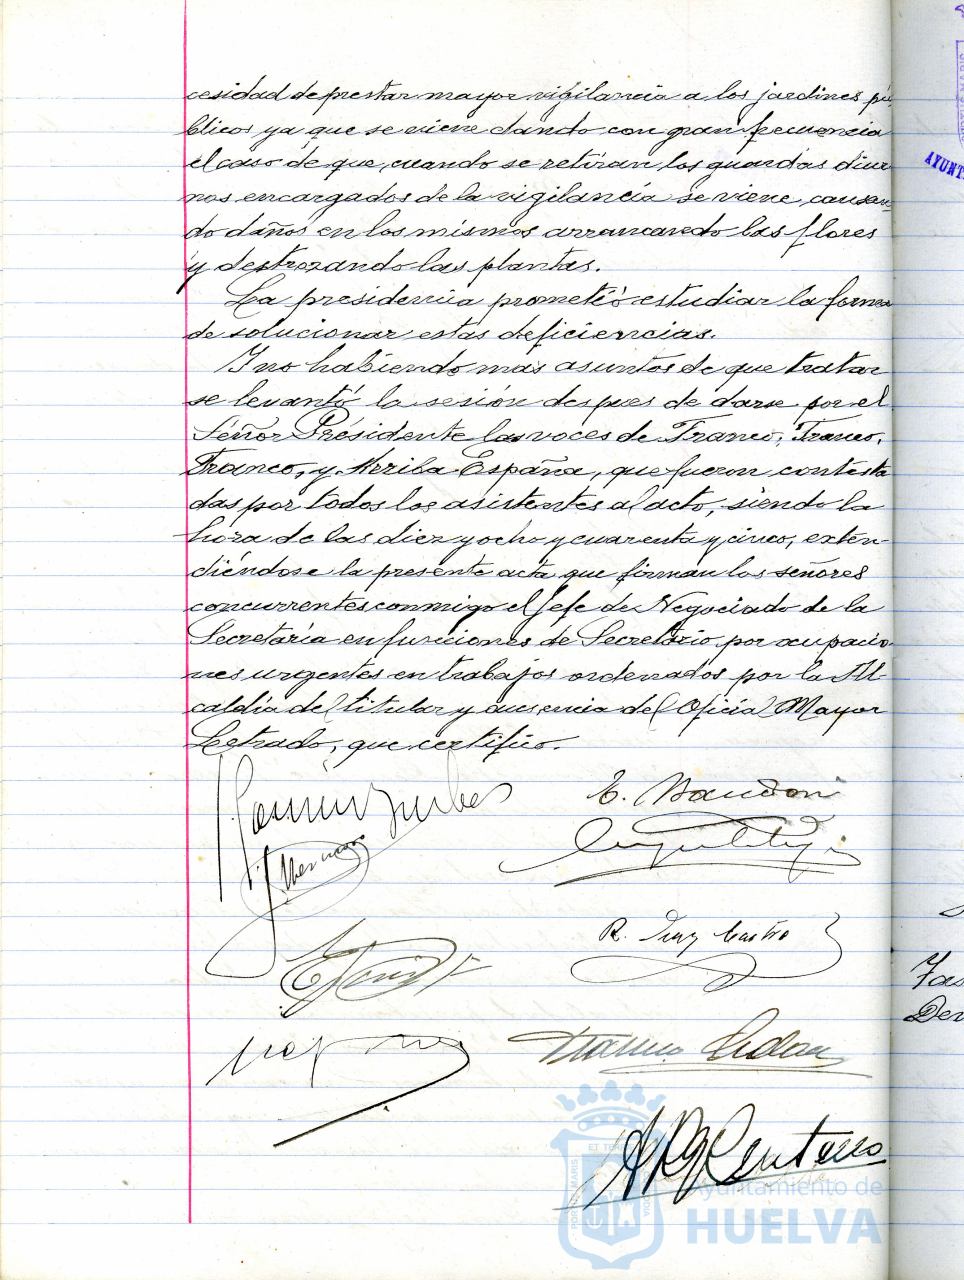 cesidad de prestar mayor vigilancia a los jardines pú
blicos ya que se viene dando con gran frecuencia
el caso de que, cuando se retiran los guardas diur
nos encargados de la vigilancia se viene, causan-
do daños en los mismos arrancando las flores
y destrozando las plantas.
La presidencia prometió estudiar la forma
de solucionar estas deficiencias.
Y no habiendo mas asuntos de que tratar
se levantó la sesión despues de darse por el
Señor Presidente las voces de Franco, Franco,
Franco, y Arriba España, que fueron contesta
das por todos los asistentes al acto, siendo la
hora de las diez y ocho y cuarenta y cinco, exten-
diéndose la presente acta que firman los señores
concurrentes conmigo el Jefe de Negociado de la
Secretaría en funciones de Secretario, por ocupacio-
nes urgentes en trabajos ordenados por la Al-
caldia del titular y ausencia del Oficial Mayor
Letrado, que certifico.
R. Diaz Castro
AYUNT
Ayuntamiento de
HUELVA